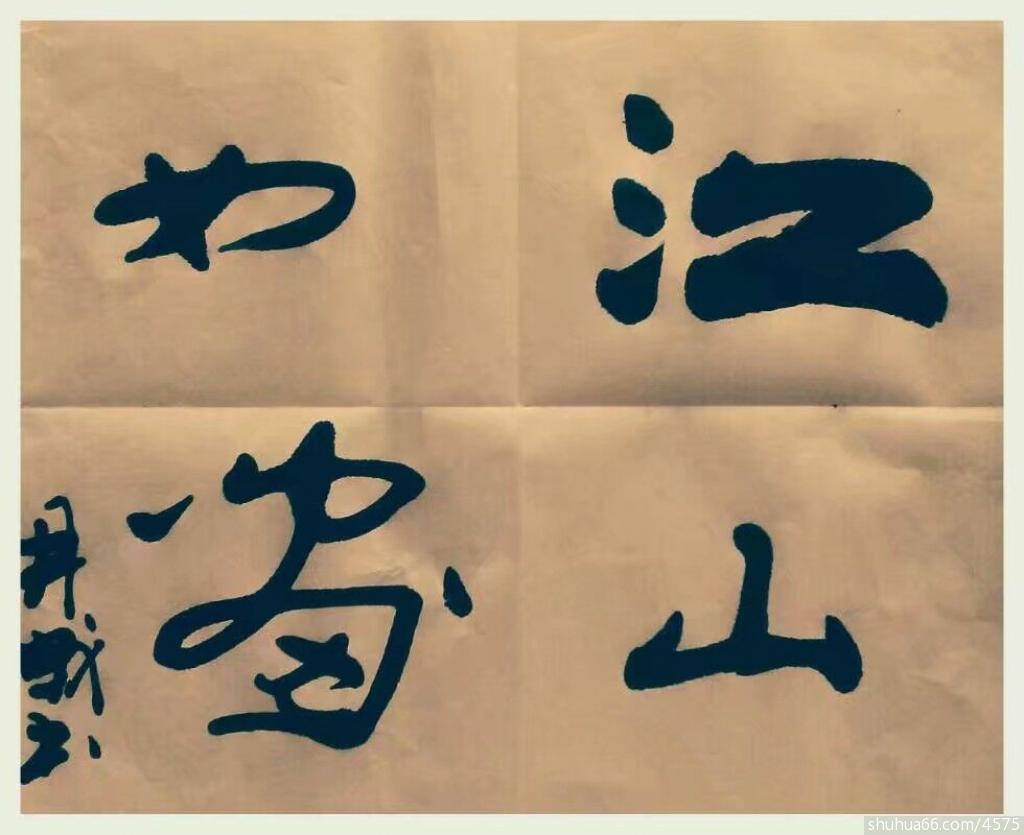 江山
如畫
shuhua66.com/4575